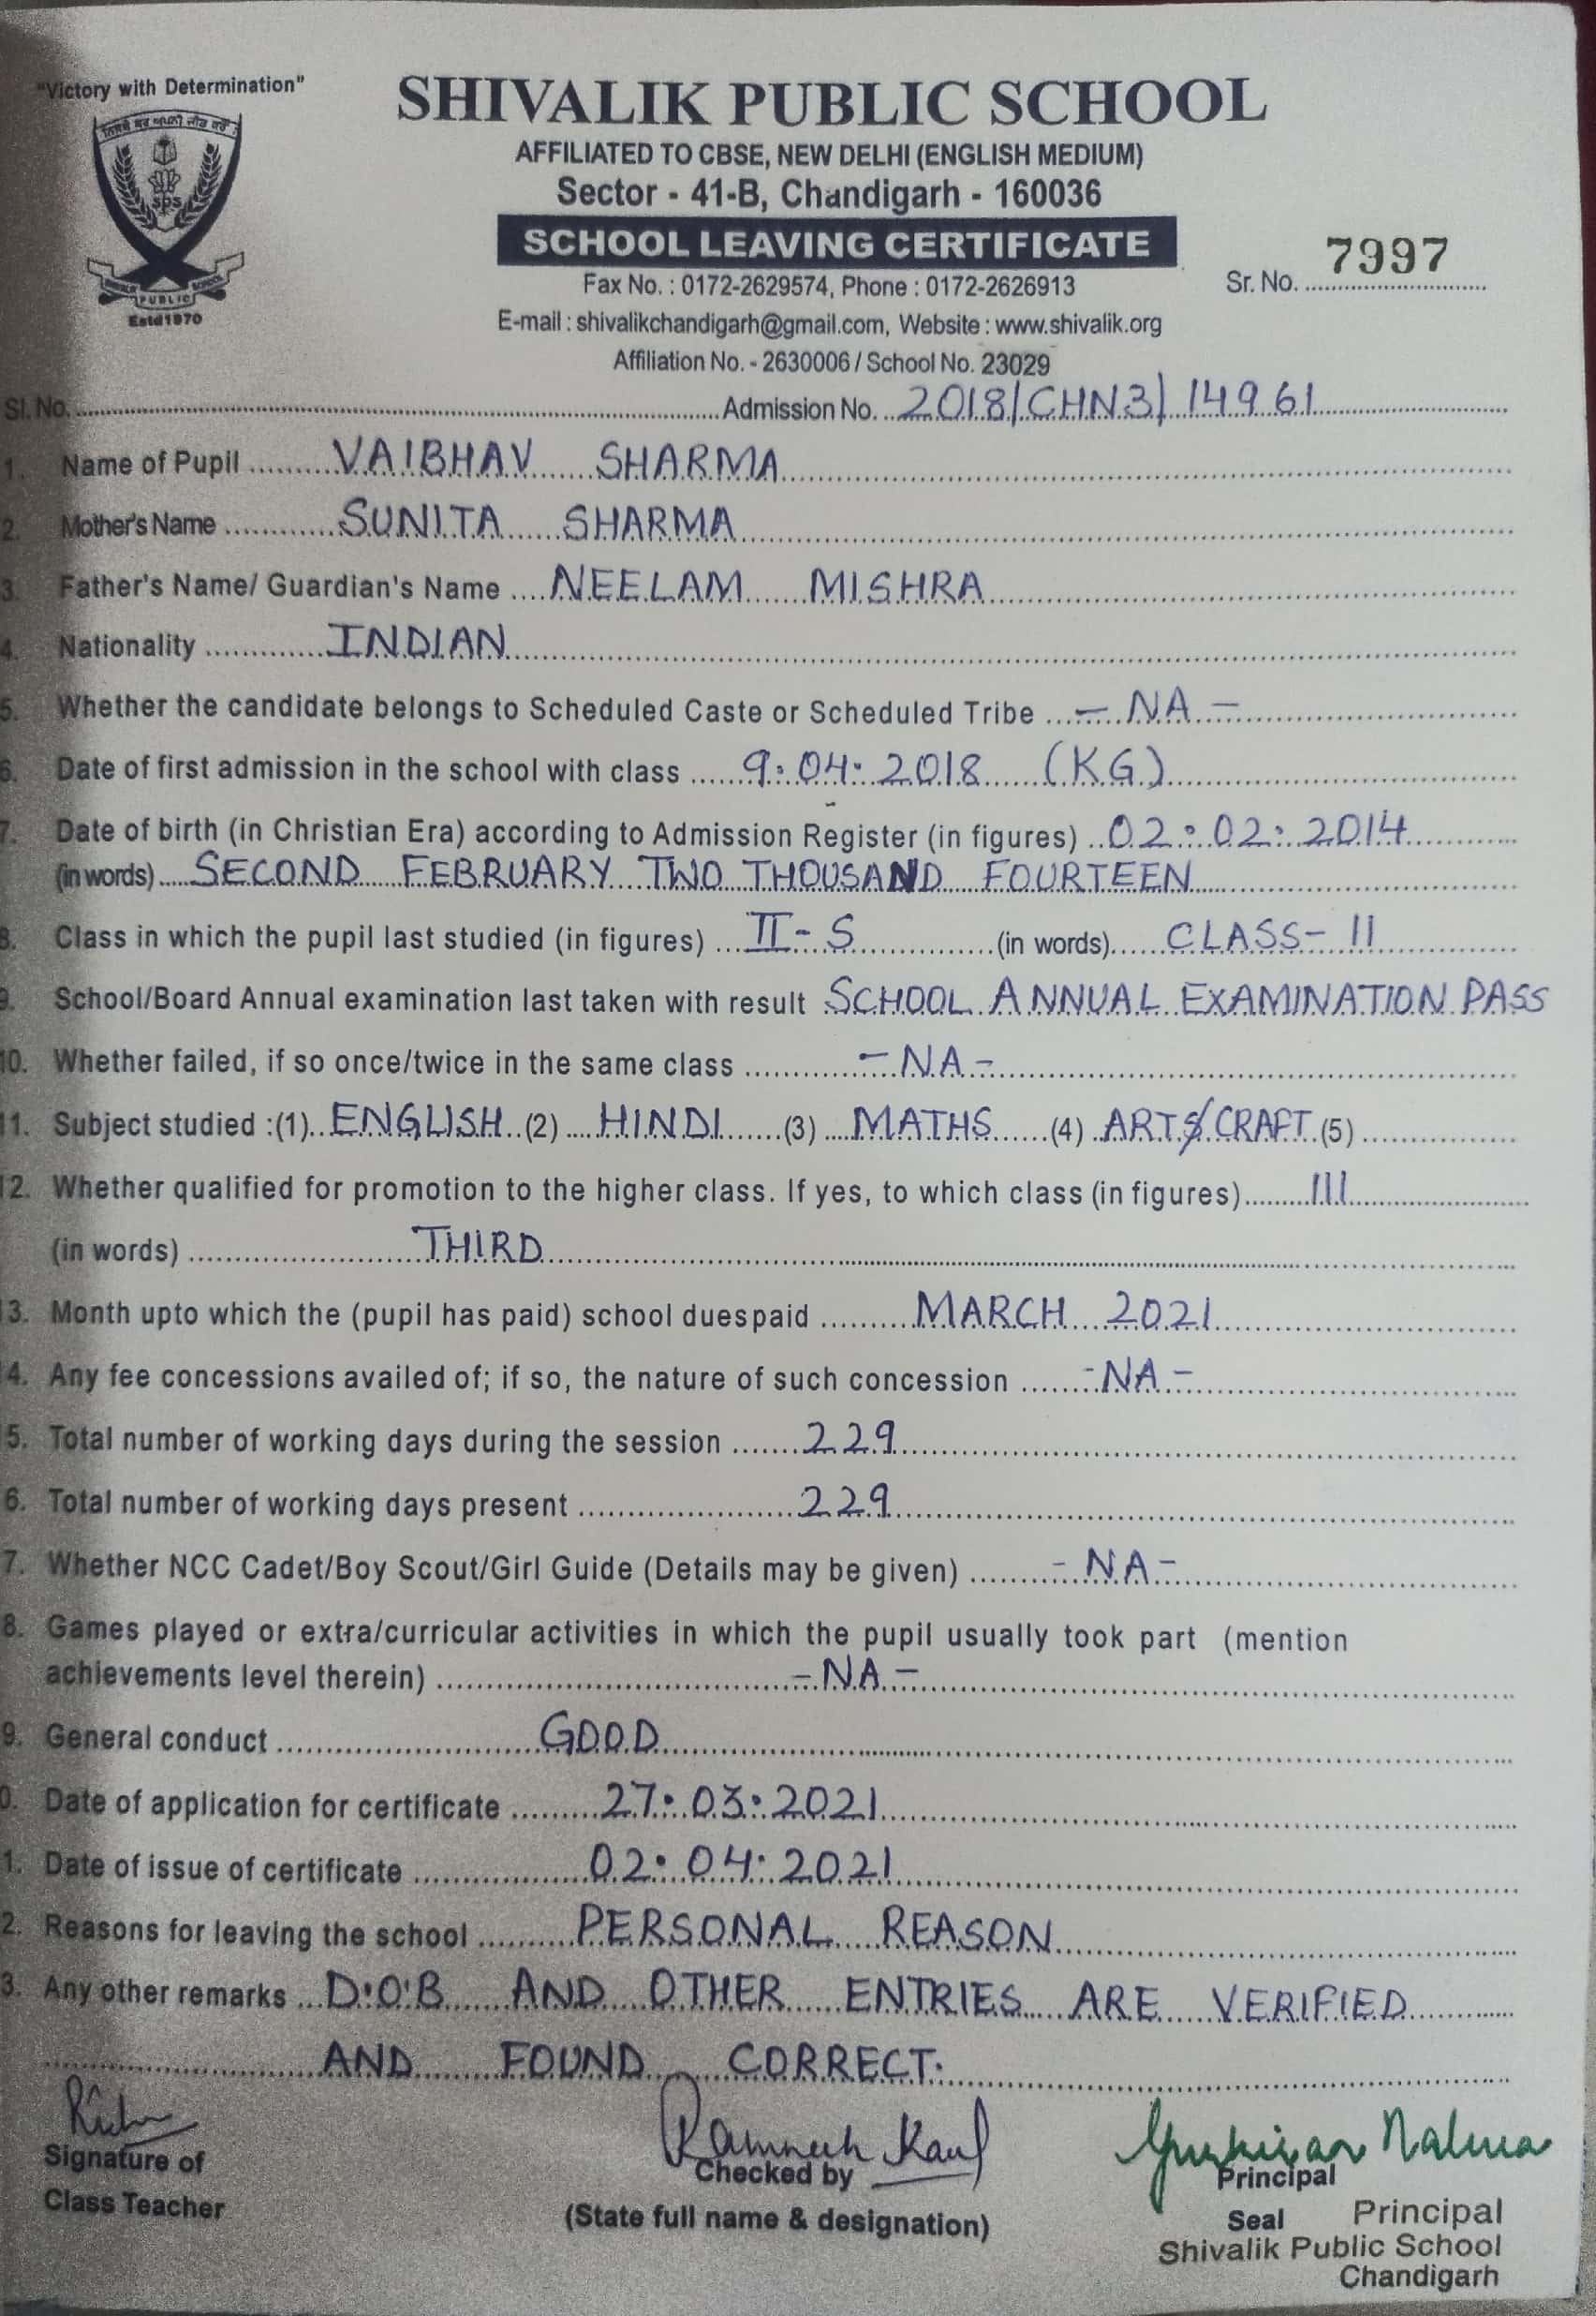 "Victory with Determination"
SHIVALIK PUBLIC SCHOOL
AFFILIATED TO CBSE, NEW DELHI (ENGLISH MEDIUM)
Sector - 41-B, Chandigarh - 160036
SCHOOL LEAVING CERTIFICATE
Sr. No. 7997
Fax No. : 0172-2629574, Phone : 0172-2626913
E-mail : shivalikchandigarh@gmail.com, Website : www.shivalik.org
Affiliation No. - 2630006 / School No. 23029
SPS
PUBLIC
Estd 1970
Sl. No. Admission No. 2018/CHN3/14961
1. Name of Pupil VAIBHAV SHARMA
2. Mother's Name SUNITA SHARMA
3. Father's Name/ Guardian's Name NEELAM MISHRA
4. Nationality INDIAN
5. Whether the candidate belongs to Scheduled Caste or Scheduled Tribe - NA -
6. Date of first admission in the school with class 9.04.2018 (KG)
7. Date of birth (in Christian Era) according to Admission Register (in figures) 02.02.2014
(in words) SECOND FEBRUARY TWO THOUSAND FOURTEEN
8. Class in which the pupil last studied (in figures) II-S (in words) CLASS-II
9. School/Board Annual examination last taken with result SCHOOL ANNUAL EXAMINATION PASS
10. Whether failed, if so once/twice in the same class - NA -
11. Subject studied :(1) ENGLISH (2) HINDI (3) MATHS (4) ARTS/CRAFT (5)
12. Whether qualified for promotion to the higher class. If yes, to which class (in figures) III
(in words) THIRD
13. Month upto which the (pupil has paid) school duespaid MARCH 2021
4. Any fee concessions availed of; if so, the nature of such concession - NA -
5. Total number of working days during the session 229
6. Total number of working days present 229
7. Whether NCC Cadet/Boy Scout/Girl Guide (Details may be given) - NA -
8. Games played or extra/curricular activities in which the pupil usually took part (mention
achievements level therein) - NA -
9. General conduct GOOD
0. Date of application for certificate 27.03.2021
1. Date of issue of certificate 02.04.2021
2. Reasons for leaving the school PERSONAL REASON
3. Any other remarks D.O.B AND OTHER ENTRIES ARE VERIFIED
AND FOUND CORRECT.
Signature of
Class Teacher
Kaul
Checked by
(State full name & designation)
Principal
Seal Principal
Shivalik Public School
Chandigarh